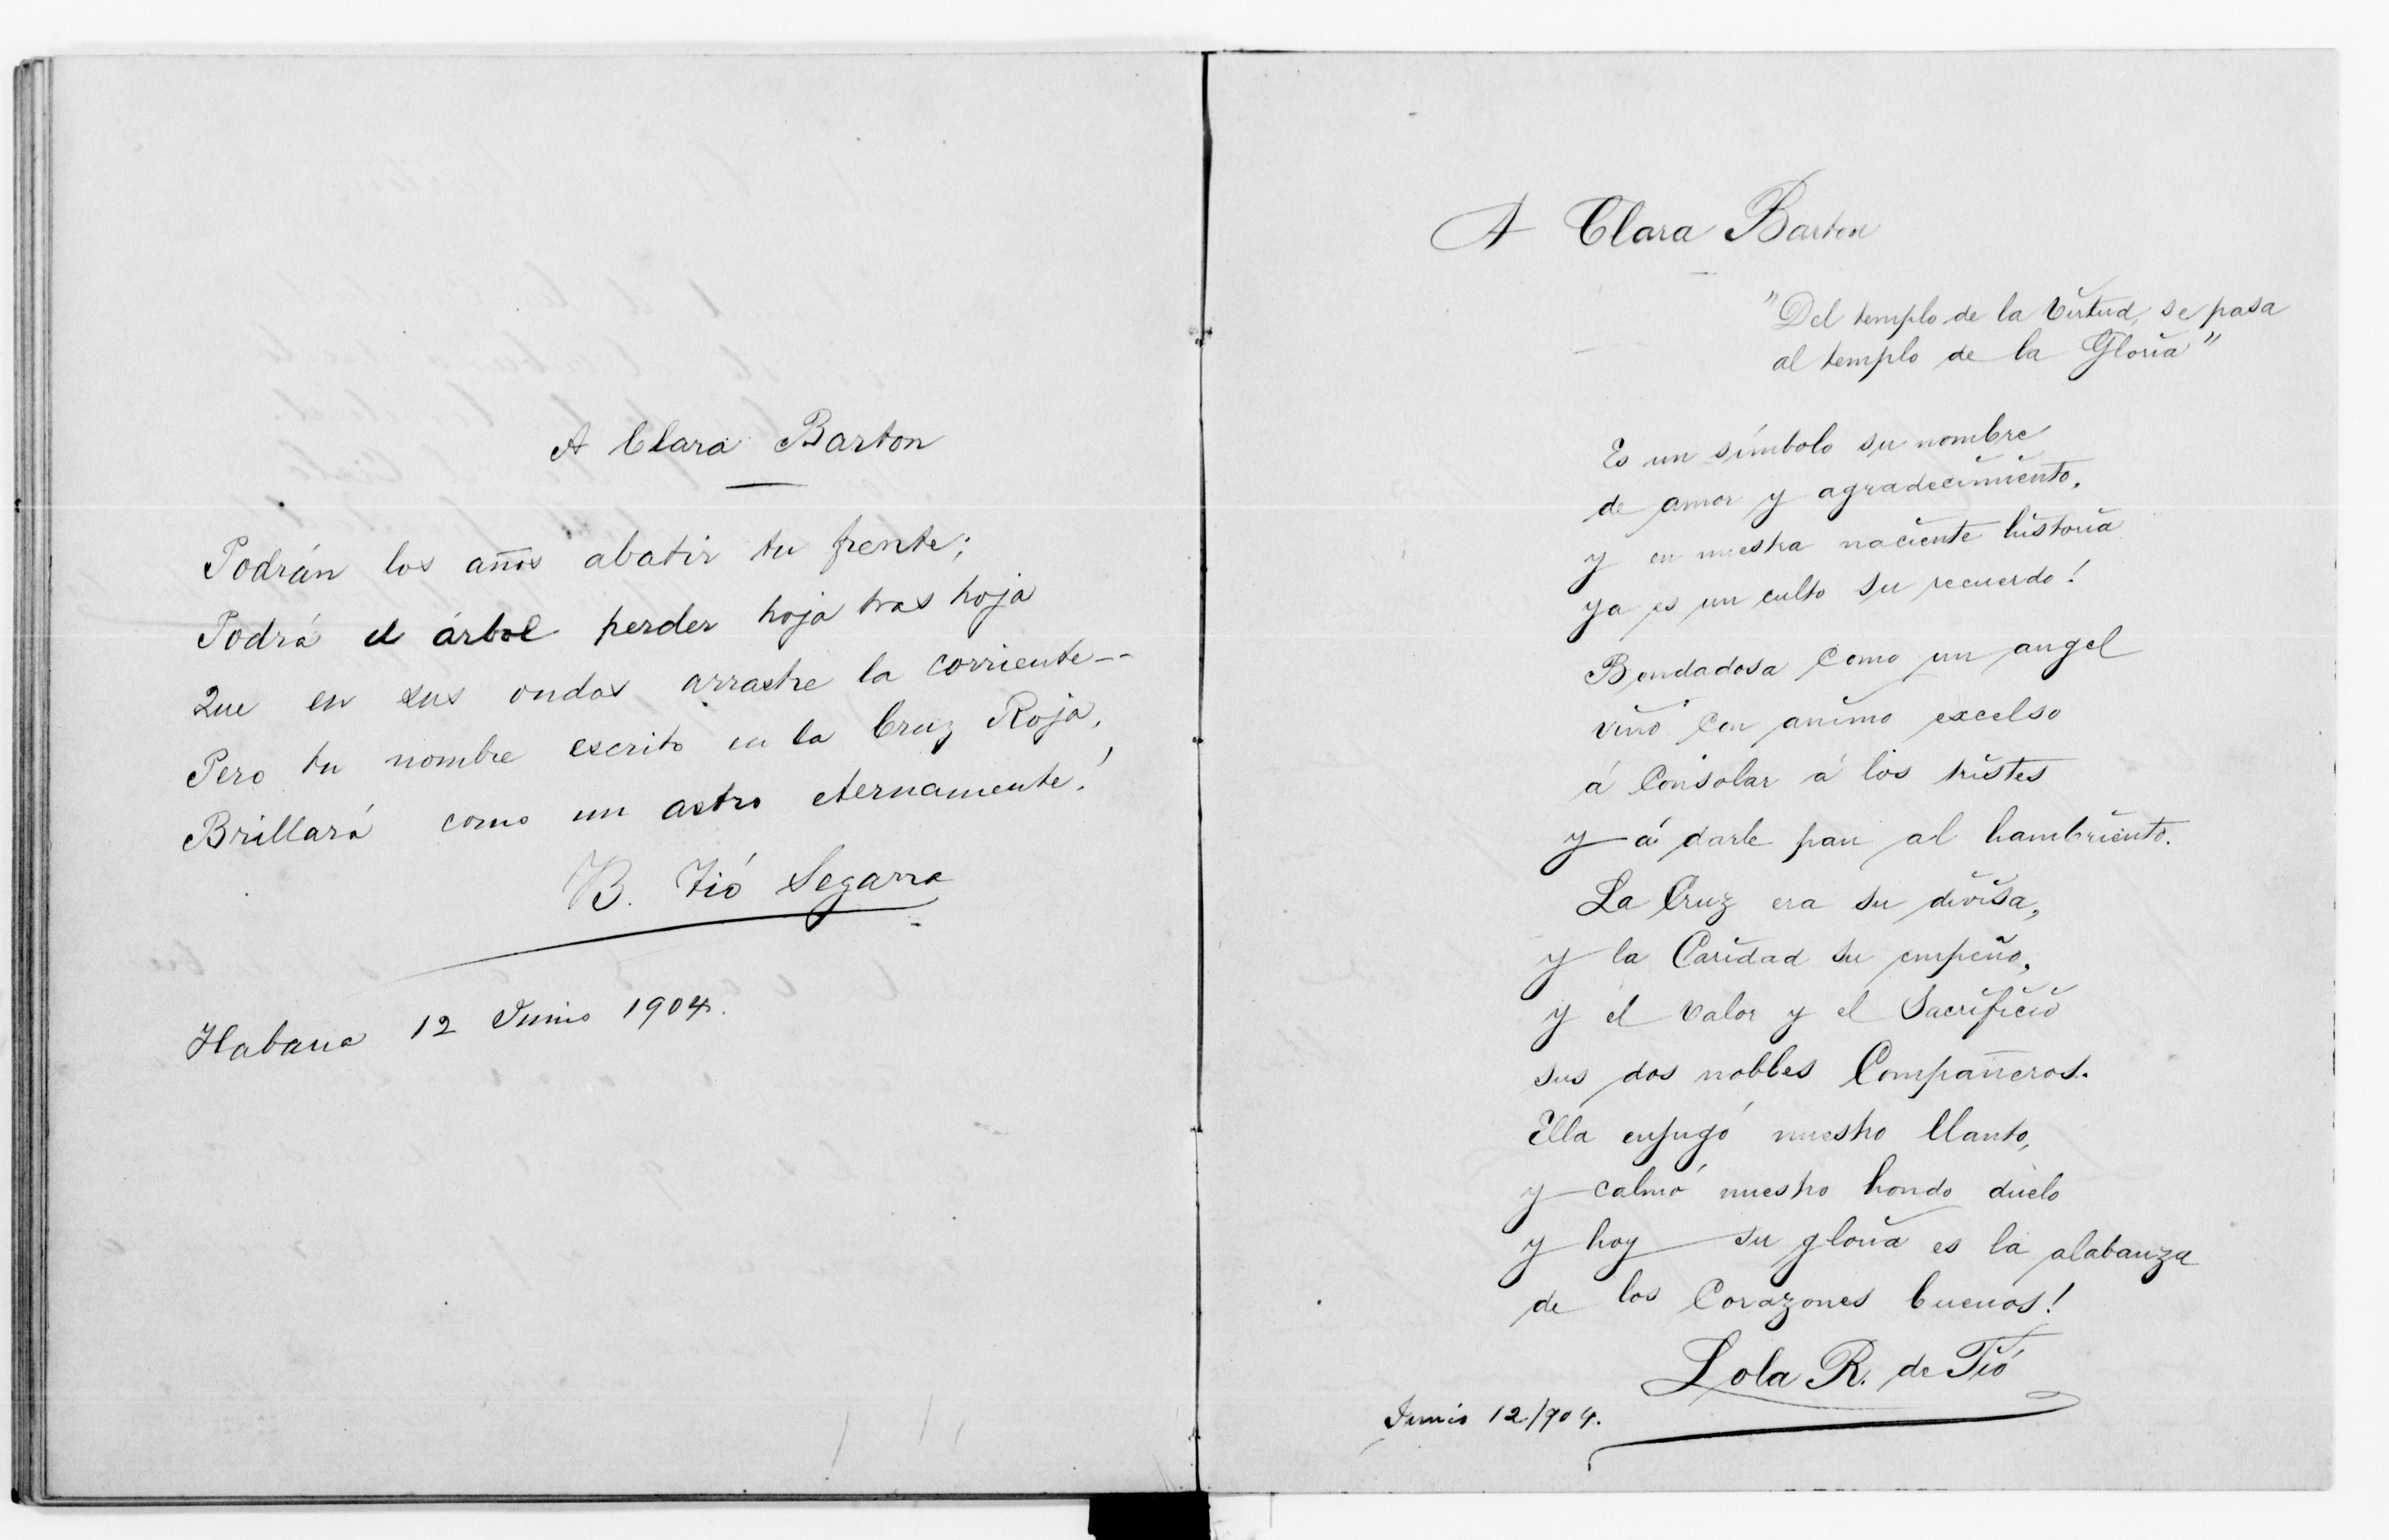 A Clara Barton
Podrán los años abatir tu frente;
Podrá el árbol perder hoja tras hoja
Que en sus ondas arrastre la corriente--
Pero tu nombre escrito en la Cruz Roja,
Brillará como un astro eternamente!
B. Tió Segarra
Habana 12 Junio 1904.
A Clara Barton
"Del templo de la Virtud, se pasa
al templo de la Gloria"
Es un símbolo su nombre
de amor y agradecimiento,
y en nuestra naciente historia
ya es un culto su recuerdo!
Bondadosa como un angel
vino con animo excelso
á Consolar á los tristes
y á darle pan al hambriento.
La Cruz era su divisa,
y la Caridad su empeño,
y el valor y el Sacrificio
sus dos nobles Compañeros.
Ella enjugó nuestro llanto,
y calmó nuestro hondo duelo
y hoy su gloria es la alabanza
de los Corazones buenos!
Lola R. de Tió
Junio 12/904.